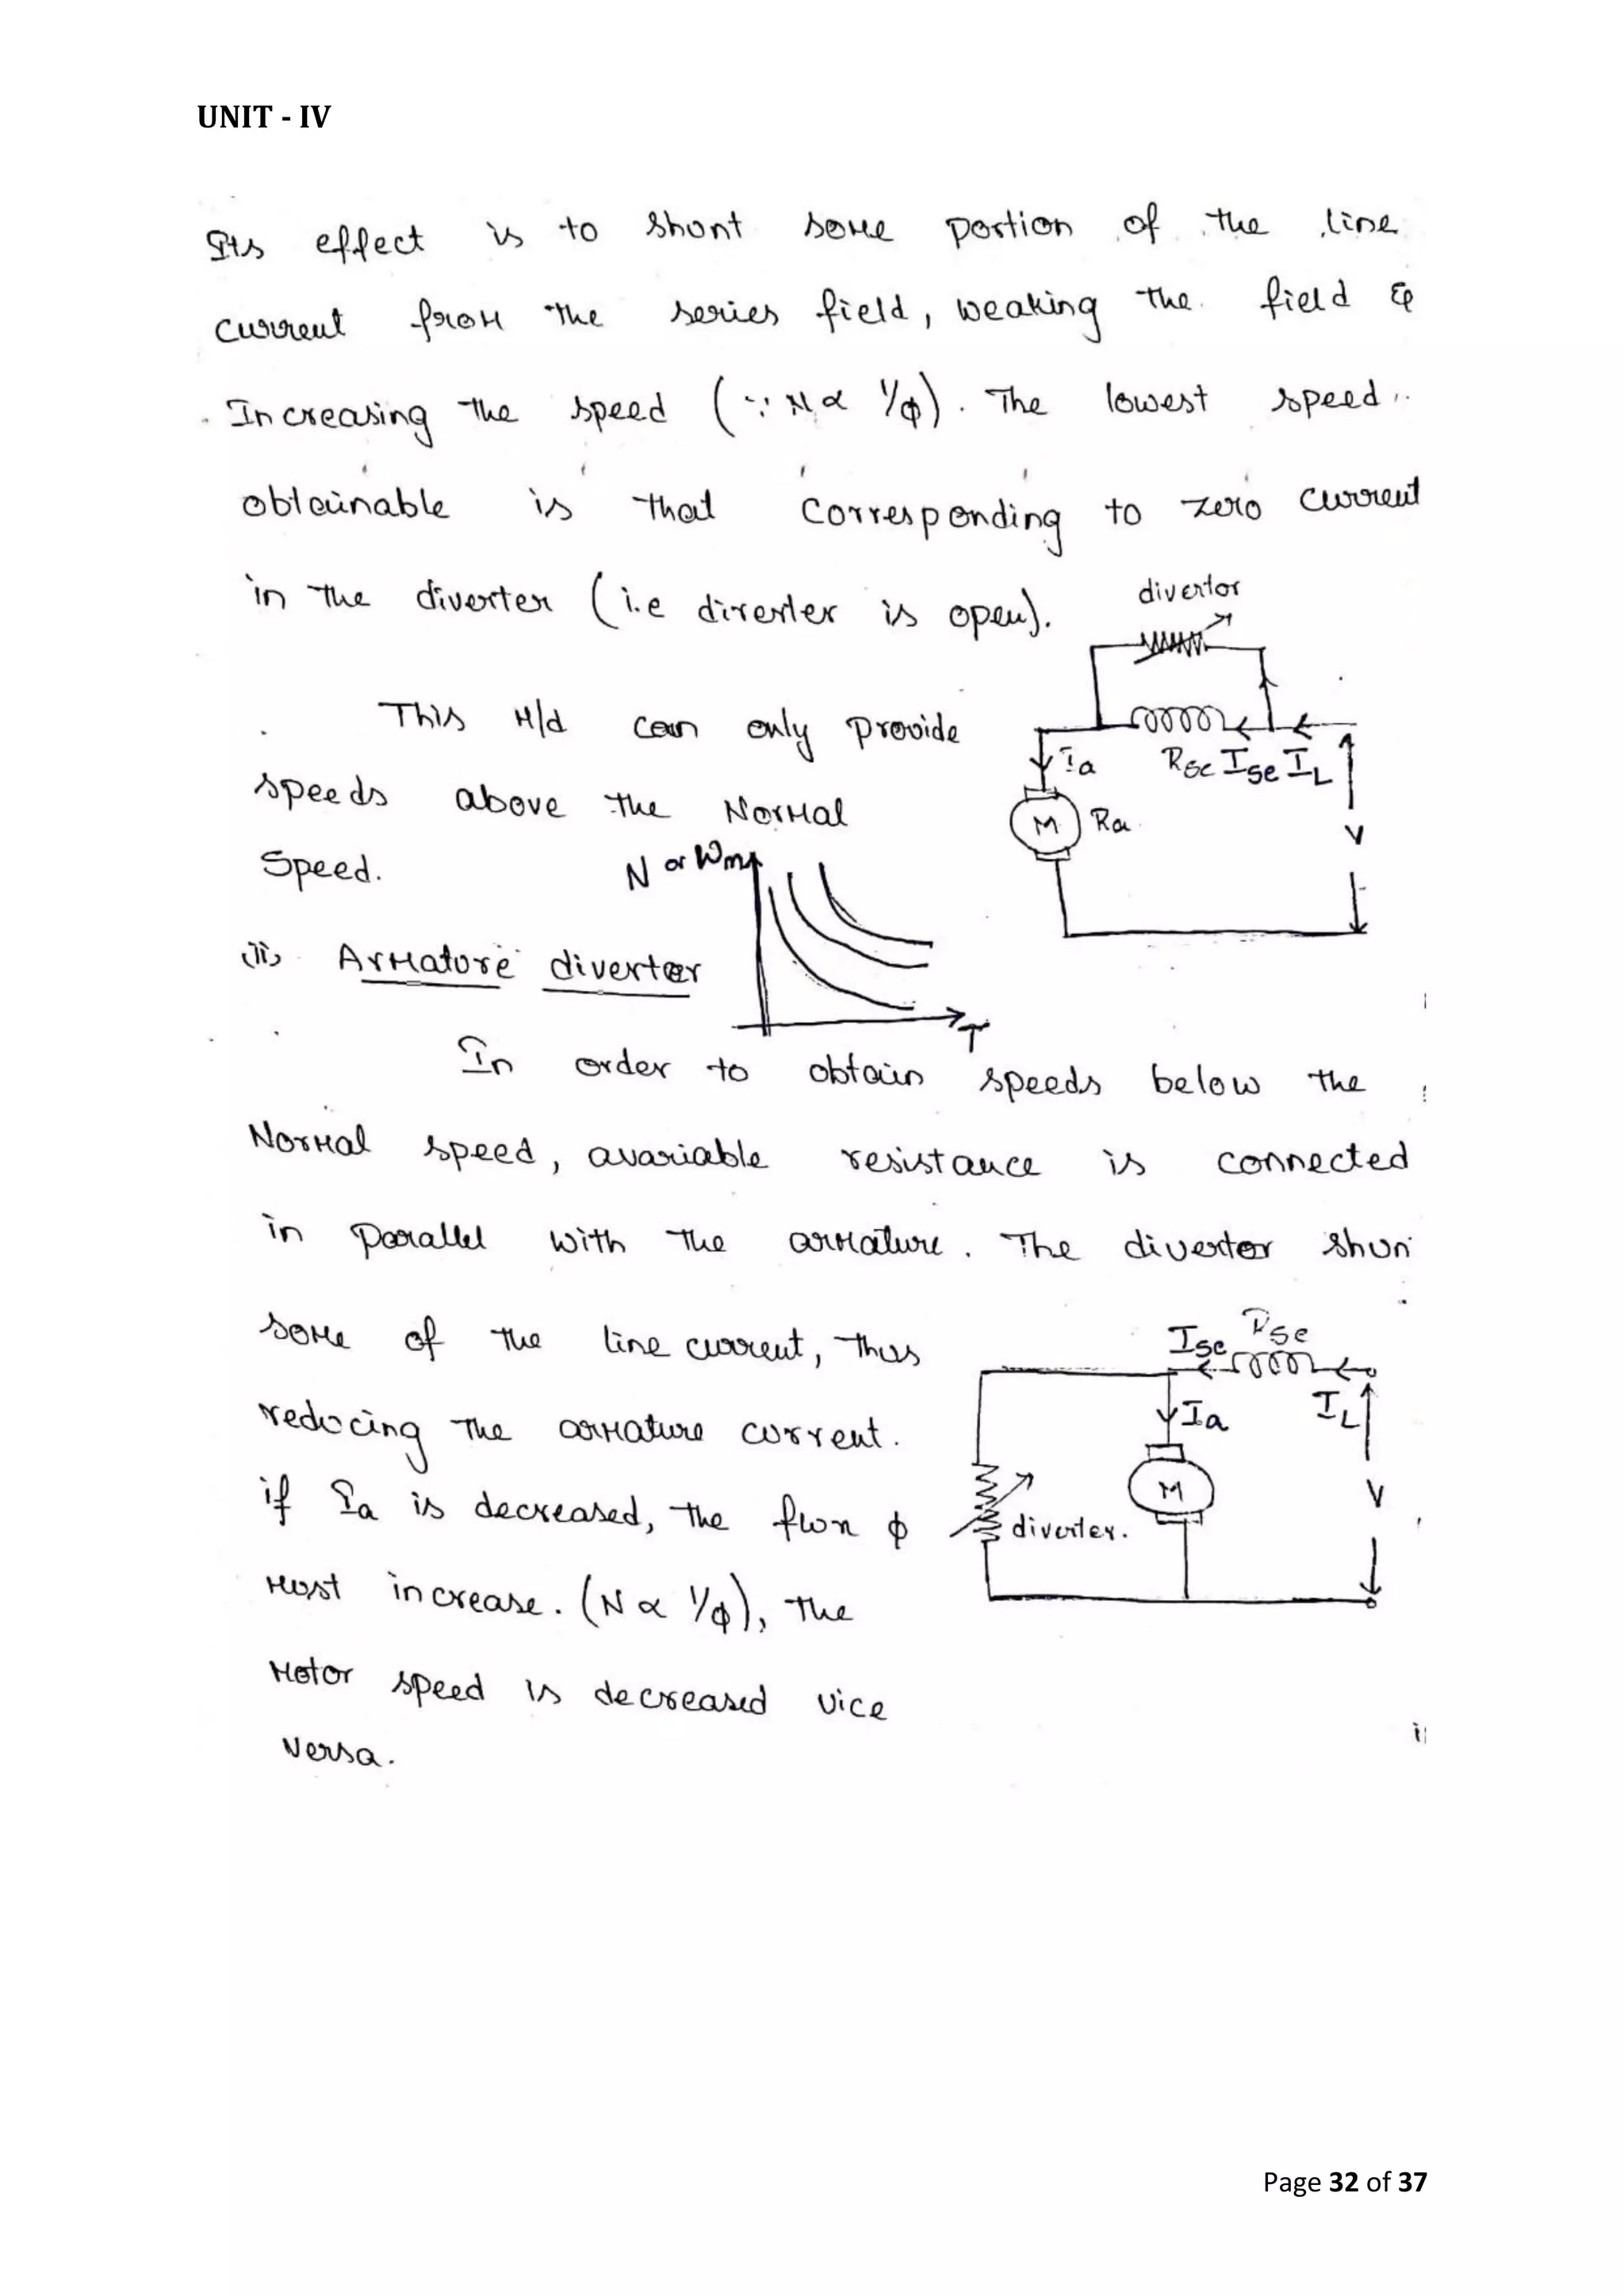 UNIT - IV
Its effect is to shunt some portion of the line
current from the series field, weaking the field &
Increasing the speed (∵ N ∝ 1/ϕ). The lowest speed
obtainable is that corresponding to zero current
in the diverter (i.e direrter is open).
divertor
This M/d can only provide
speeds above the Normal
Speed.
Ia
Rse Ise IL
M
Ra
V
N or Wm
T
(ii) Armature diverter
In order to obtain speeds below the
Normal speed, avariable resistance is connected
in parallel with the armature. The diverter shun
some of the line current, thus
reducing the armature current.
if Ia is decreased, the flux ϕ
must increase. (N ∝ 1/ϕ), The
Motor speed is decreased vice
versa.
Ise Rse
Ia
IL
M
V
diverter.
Page 32 of 37